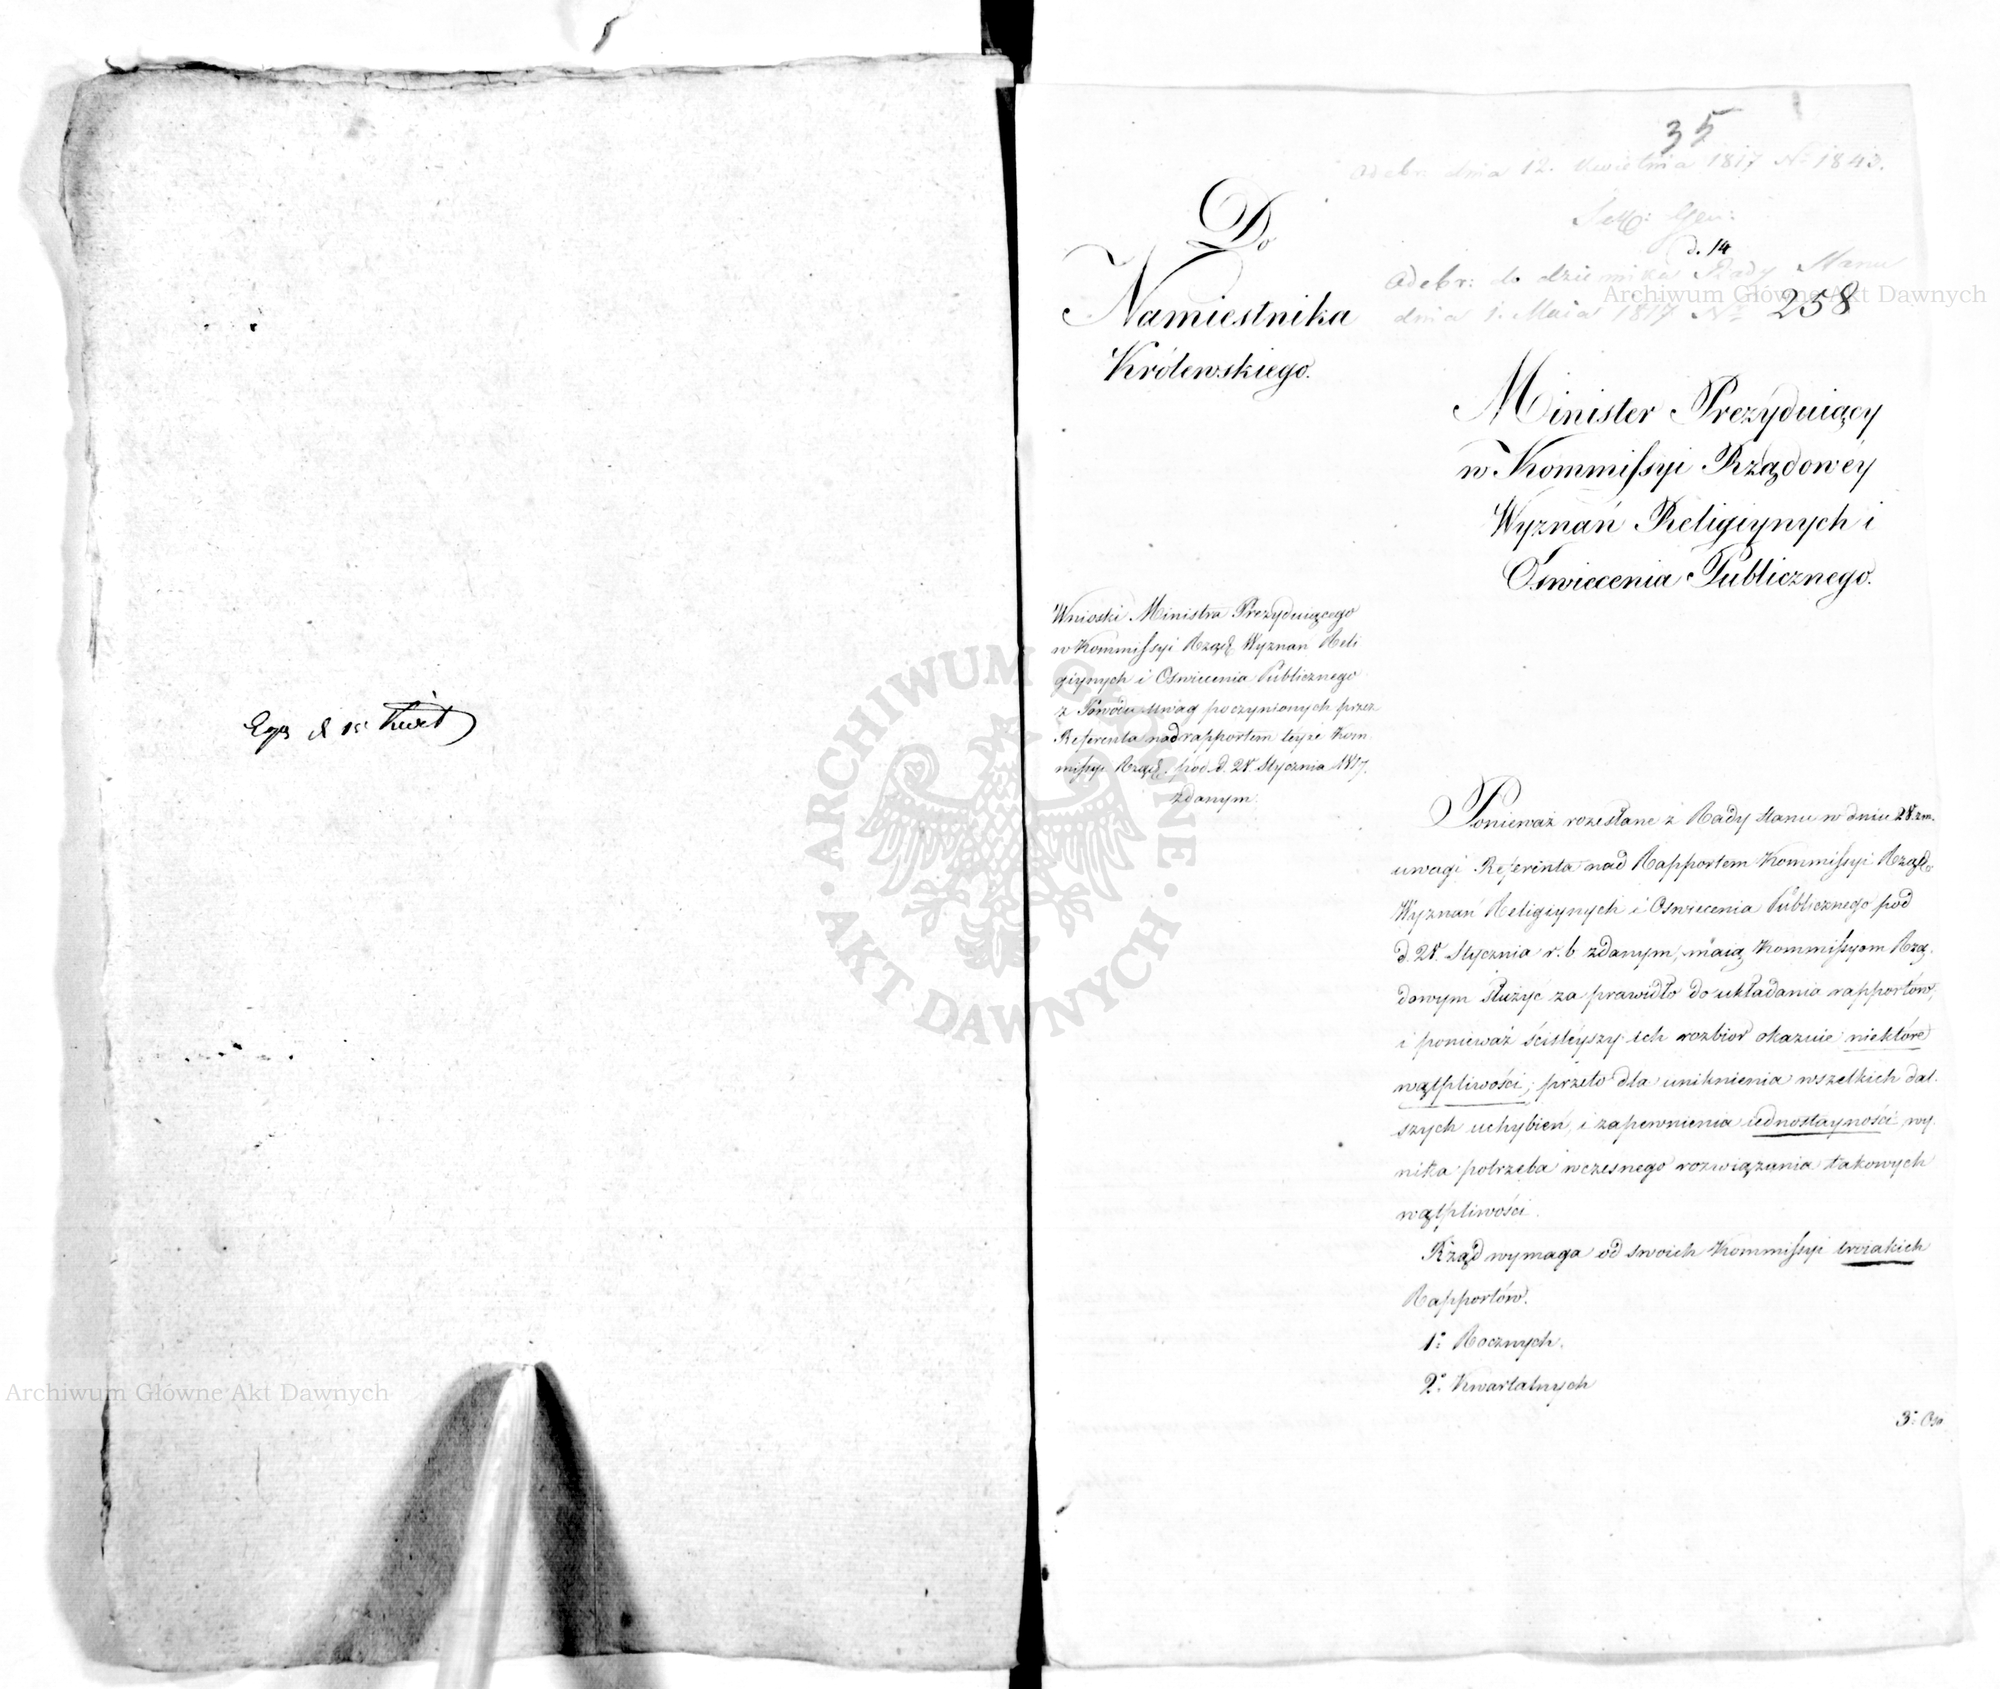 Exp d 15 Kwiet
35
Odebr. dnia 12. Kwietnia 1817 No 1843.
Sekr: Gen:
d. 14
Odebr: do dziennika Rady Stanu
dnia 1. Maia 1817 No 258
Do
Namiestnika
Królewskiego.
Minister Prezyduiący
w Kommissyi Rządowéy
Wyznań Religiynych i
Oświecenia Publicznego.
Wnioski Ministra Prezyduiącego
w Kommissyi Rząd. Wyznań Reli
giynych i Oświecenia Publicznego
z Powodu uwag poczynionych przez
Referenta nad rapportem teyże Kom
missyi Rząd. pod d. 28 Stycznia 1817.
zdanym.
Ponieważ rozesłane z Rady Stanu w dniu 28. z.m.
uwagi Referenta nad Rapportem Kommissyi Rządo.
Wyznań Religiynych i Oświecenia Publicznego pod
d. 28. Stycznia r. b. zdanym, maią Kommissyom Rzą.
dowym służyć za prawidło do układania rapportów,
i ponieważ ściśleyszy ich rozbiór okazuie niektóre
wątpliwości; przeto dla uniknienia wszelkich dal.
szych uchybień, i zapewnienia iednostayności, wy.
nika potrzeba wczesnego rozwiązania takowych
wątpliwości.
Rząd wymaga od swoich Kommissyi troiakich
Rapportów.
1º Rocznych.
2º Kwartalnych
3º Oso
Archiwum Główne Akt Dawnych
Archiwum Główne Akt Dawnych
ARCHIWUM GŁÓWNE · AKT DAWNYCH ·